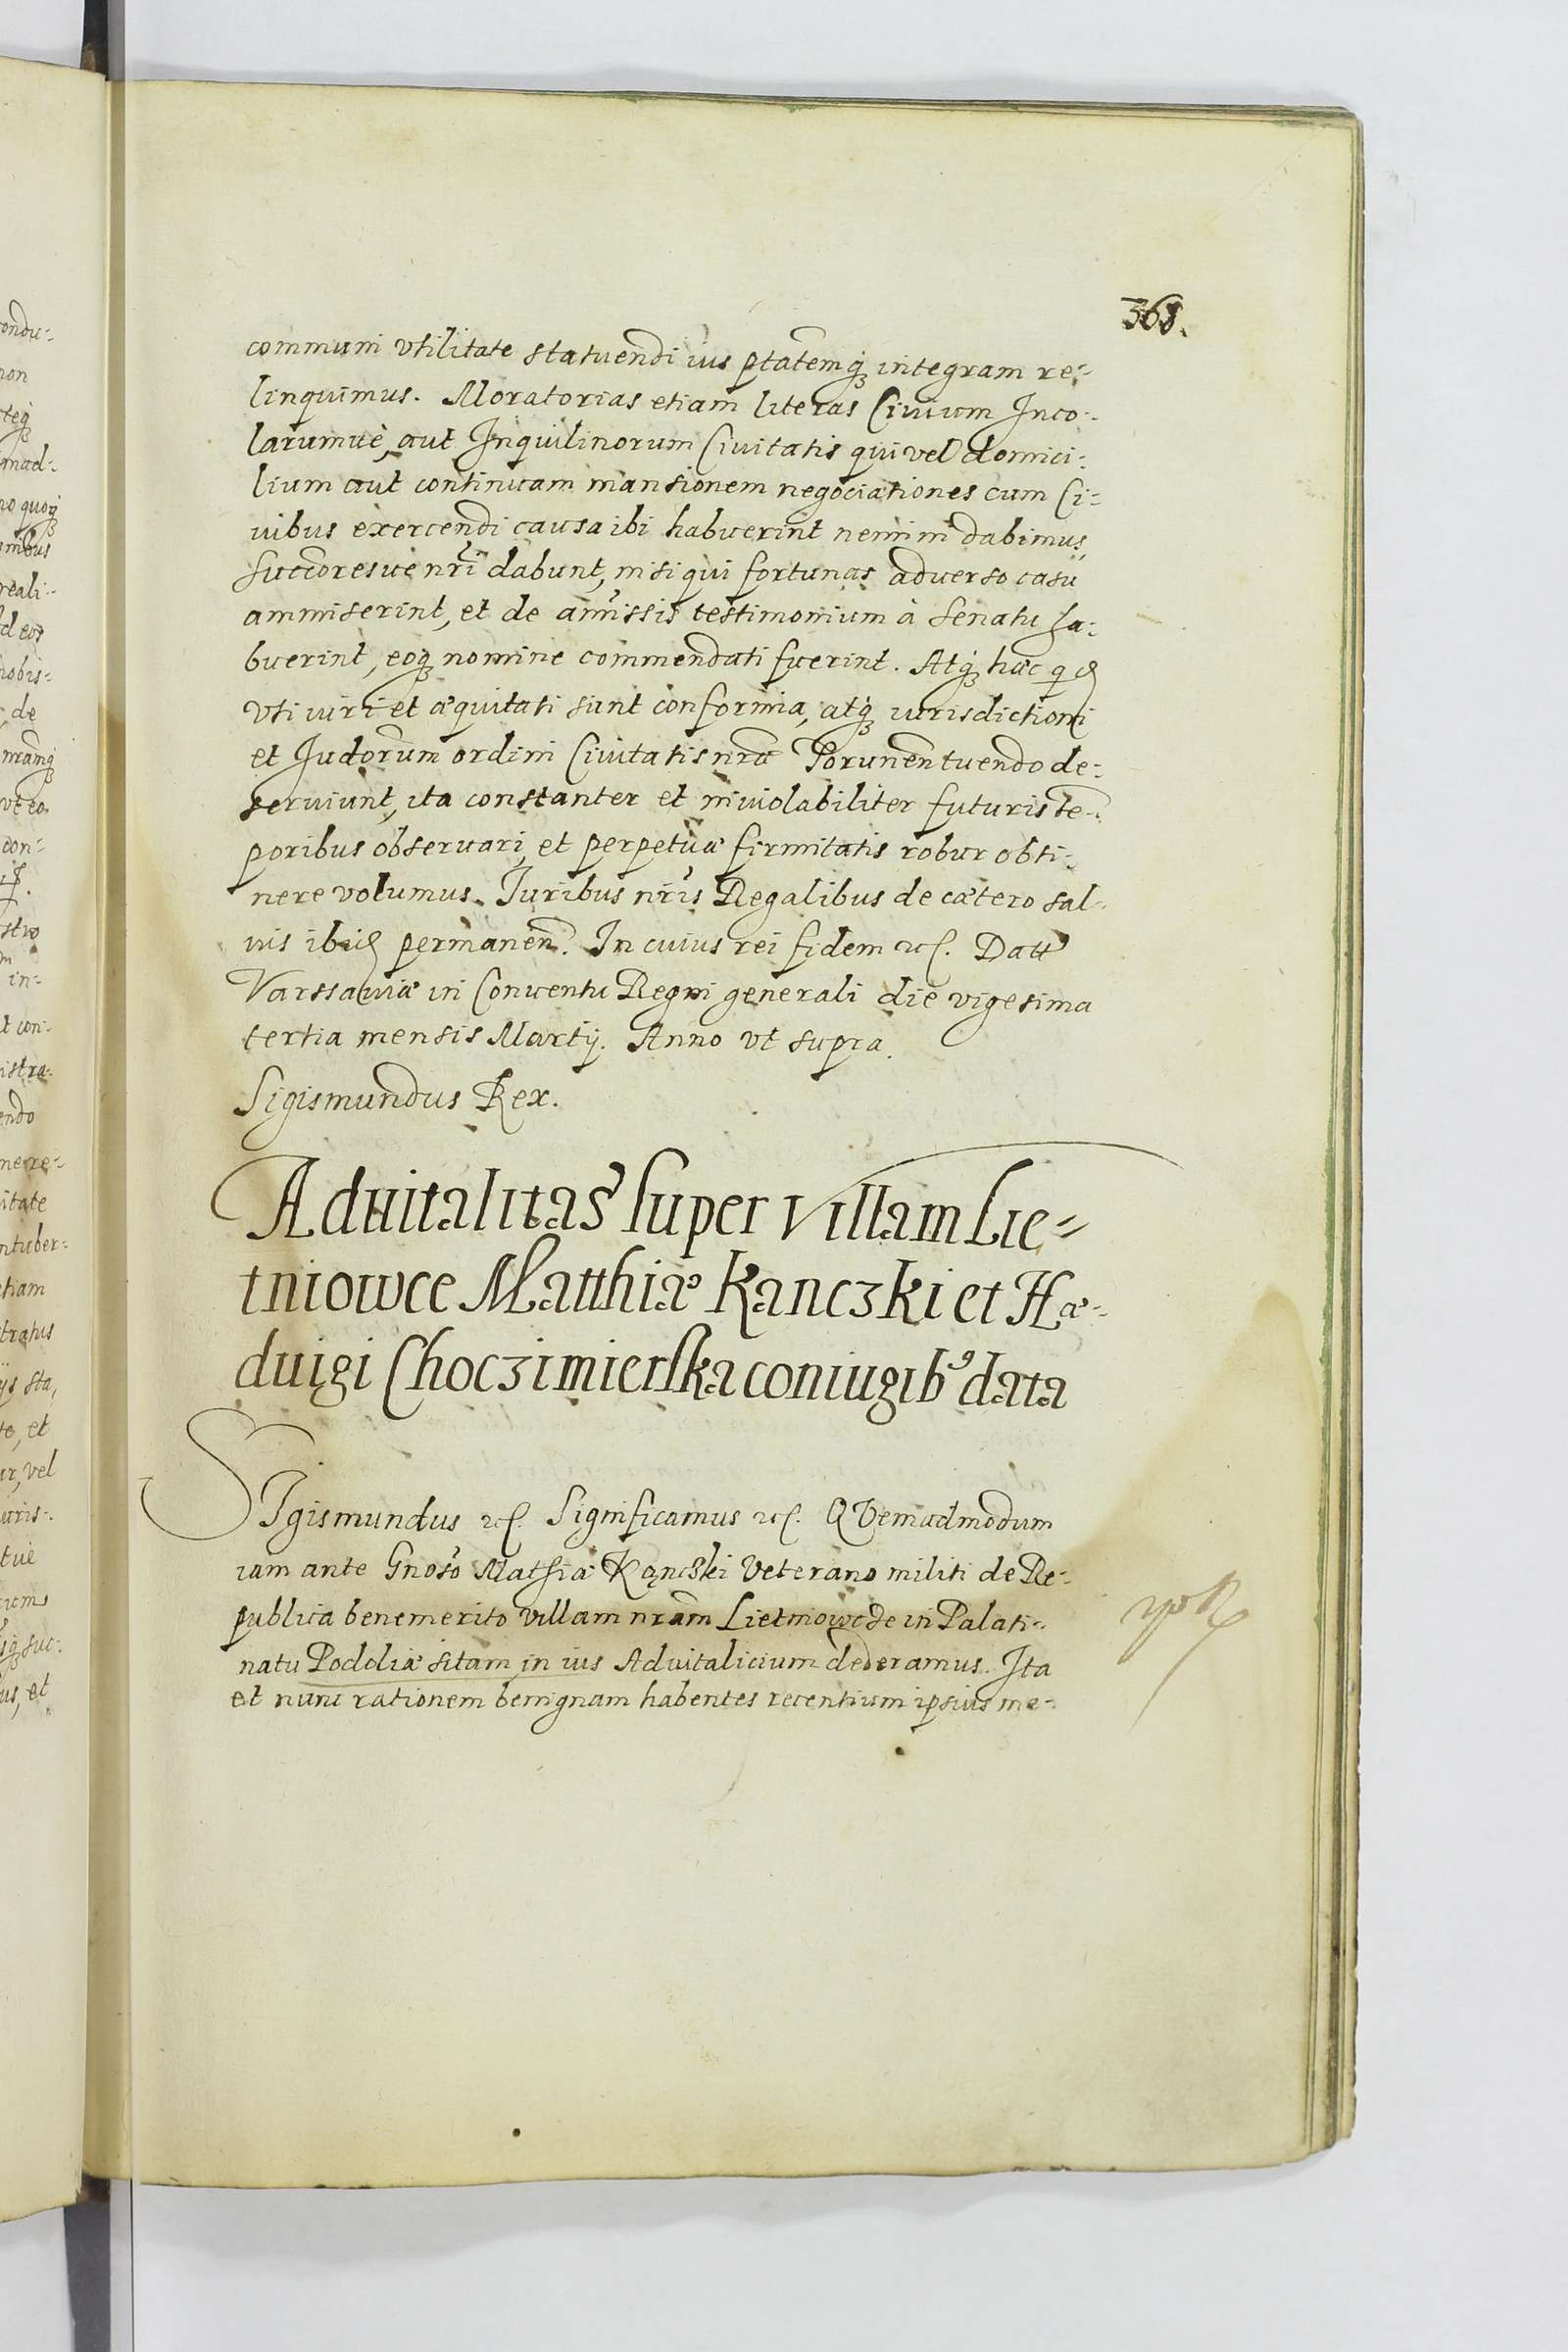 368.
communi vtilitate statuendi ius ptatemq́ꝫ integram re-
linquimus. Moratorias etiam literas Ciuium Inco-
larumuè, aut Inquilinorum Ciuitatis qui vel domici-
lium aut continuam mansionem negociationes cum Ci-
uibus exercendi causa ibi habuerint nemini dabimus,
succoresue nr̃i dabunt, nisi qui fortunas aduerso casu
ammiserint, et de amissis testimonium à Senatu ha-
buerint, eoqꝫ nomine commendati fuerint. Atqꝫ hæc
vti iuri et æquitati sunt conformia, atqꝫ iurisdictioni
et Judorum ordini Ciuitatis nr̃æ Torunen tuendo de-
seruiunt, ita constanter et inuiolabiliter futuris te-
poribus obseruari, et perpetuæ firmitatis robur obti-
nere volumus. Juribus nr̃is Regalibus de cætero sal-
uis ibid permanen. In cuius rei fidem etc. Datt
Varssauiæ in Conuentu Regni generali die vigesima
tertia mensis Martij. Anno vt supra.
Sigismundus Rex.
Aduitalitas super Villam Lie-
tniowce Matthiæ Kanczki et Hæ-
duigi Choczimierska coniugibꝰ data
SIgismundus etc. Significamus etc. QVemadmodum
iam ante Gnoso Mathiæ Kąncski Veterano militi de Re-
publica benemerito villam nram Lietniowcze in Palati-
natu Podoliæ sitam in ius Aduitalicium dederamus. Ita
et nunc rationem benignam habentes recentium ipsius me-
ondu-
non
teqꝫ
mad-
no quoqꝫ
reali-
d eos
nobis-
de
vt eo
con-
stro
in-
t con-
istra-
endo
nere-
itate
ntuber-
etiam
tratus
ijs sta,
te, et
ur, vel
uris-
tuè
suc-
us, et